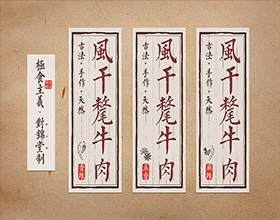 極食主義·對錦堂制
風干氂牛肉
古法·手作·天然
風干氂牛肉
古法·手作·天然
五香
風干氂牛肉
古法·手作·天然